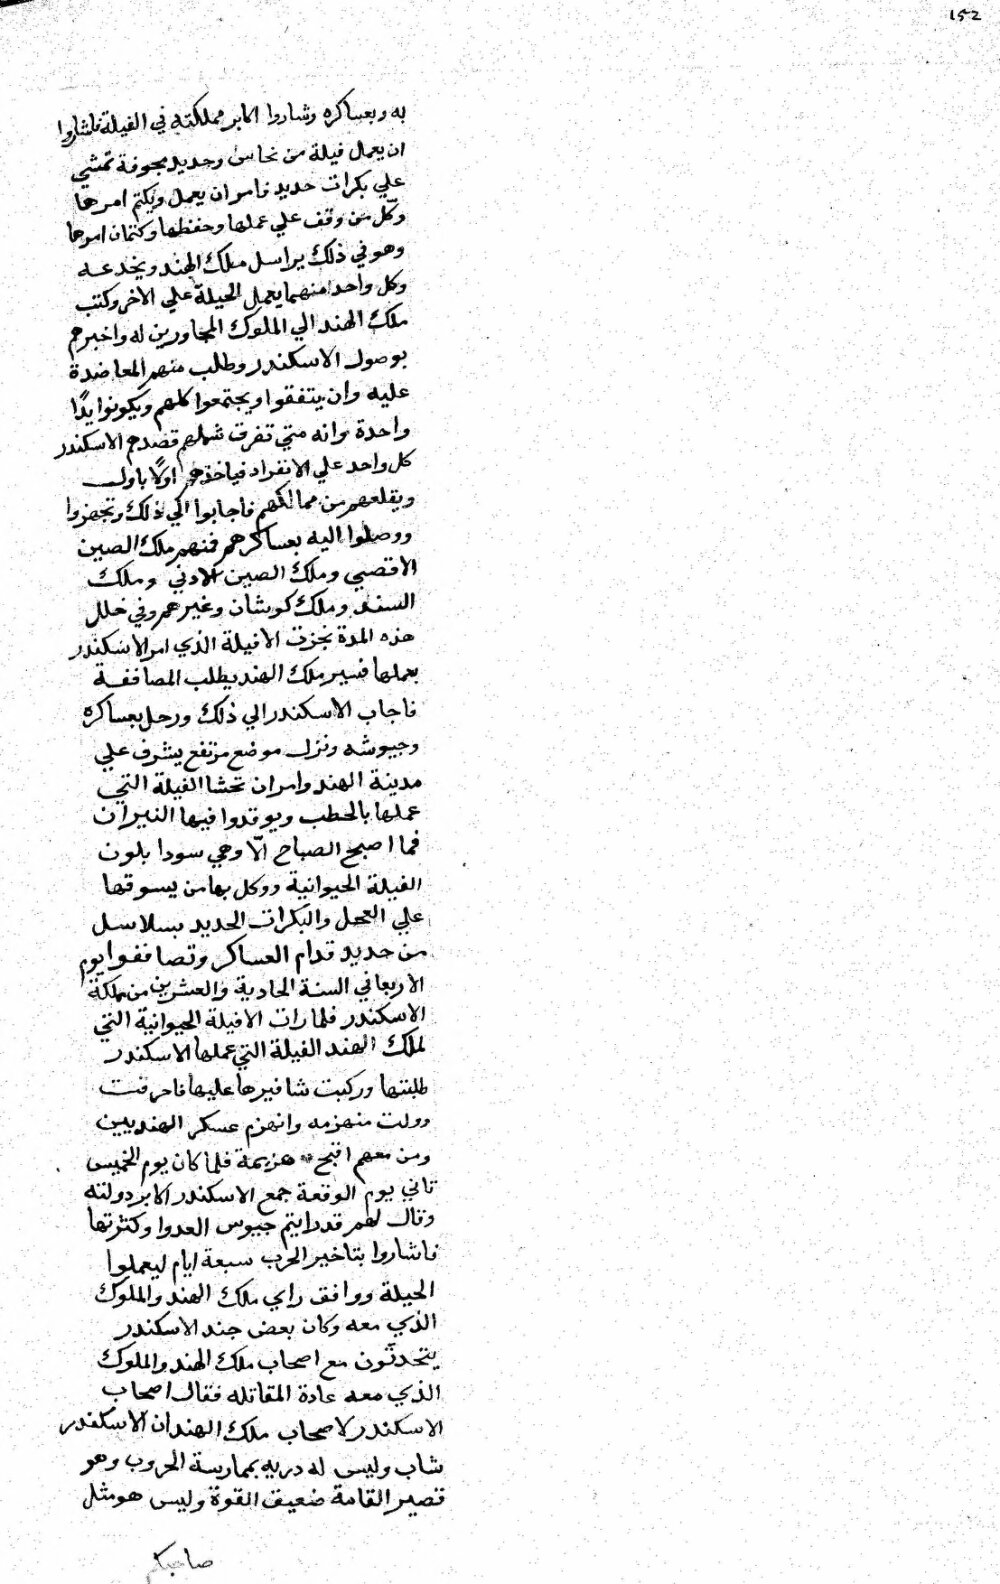 152
به وبعساكره وشاروا اكابر مملكته في الفيلة فاشاروا
ان يعمل فيلة من نحاس وحديد مجوفة تمشي
علي بكرات حديد فامر ان يعمل ويكتم امرها
وكّل من وقف علي عملها وحفظها وكتمان امرها
وهو في ذلك يراسل ملك الهند ويخدعه
وكل واحد منهما يعمل الحيلة علي الاخر وكتب
ملك الهند الي الملوك المجاورين له واخبرهم
بوصول الاسكندر وطلب منهم المعاضدة
عليه وان يتفقوا ويجتمعوا كلهم ويكونوا يدًا
واحدة وانه متي تفرق شملهم قصدهم الاسكندر
كل واحد علي الانفراد فياخذهم اولًا باول
ويقلعهم من ممالكهم فاجابوا الي ذلك وتجهزوا
ووصلوا اليه بعساكرهم فمنهم ملك الصين
الاقصي وملك الصين الادني وملك
السند وملك كوشان وغيرهم وفي خلل
هذه المدة نجزت الافيلة الذي امر الاسكندر
بعملها فسير ملك الهند يطلب المصاففة
فاجاب الاسكندر الي ذلك ورحل بعساكره
وجيوشه ونزل موضع مرتفع يشرف علي
مدينة الهند وامر ان تحشا الفيلة التي
عملها بالحطب ويوقدوا فيها النيران
فما اصبح الصباح الّا وهي سودا بلون
الفيلة الحيوانية ووكل بها من يسوقها
علي العجل والبكرات الحديد بسلاسل
من حديد قدام العساكر وتصاففوا يوم
الاربعا في السنة الحادية والعشرين من مملكة
الاسكندر فلما رات الافيلة الحيوانية التي
لملك الهند الفيلة التي عملها الاسكندر
طلبتها وركبت شافيرها عليها فاحرقت
وولت منهزمه وانهزم عسكر الهنديين
ومن معهم اقبح هزيمة فلما كان يوم الخميس
ثاني يوم الوقعة جمع الاسكندر اكابر دولته
وقال لهم قد رايتم جيوس العدوا وكثرتها
فاشاروا بتاخير الحرب سبعة ايام ليعملوا
الحيلة ووافق راي ملك الهند والملوك
الذي معه وكان بعض جند الاسكندر
يتحدثون مع اصحاب ملك الهند والملوك
الذي معه عادة المقاتله فقال اصحاب
الاسكندر لاصحاب ملك الهند ان الاسكندر
شاب وليس له دربه بممارسة الحروب وهو
قصير القامة ضعيف القوة وليس هو مثل
صاحبكم